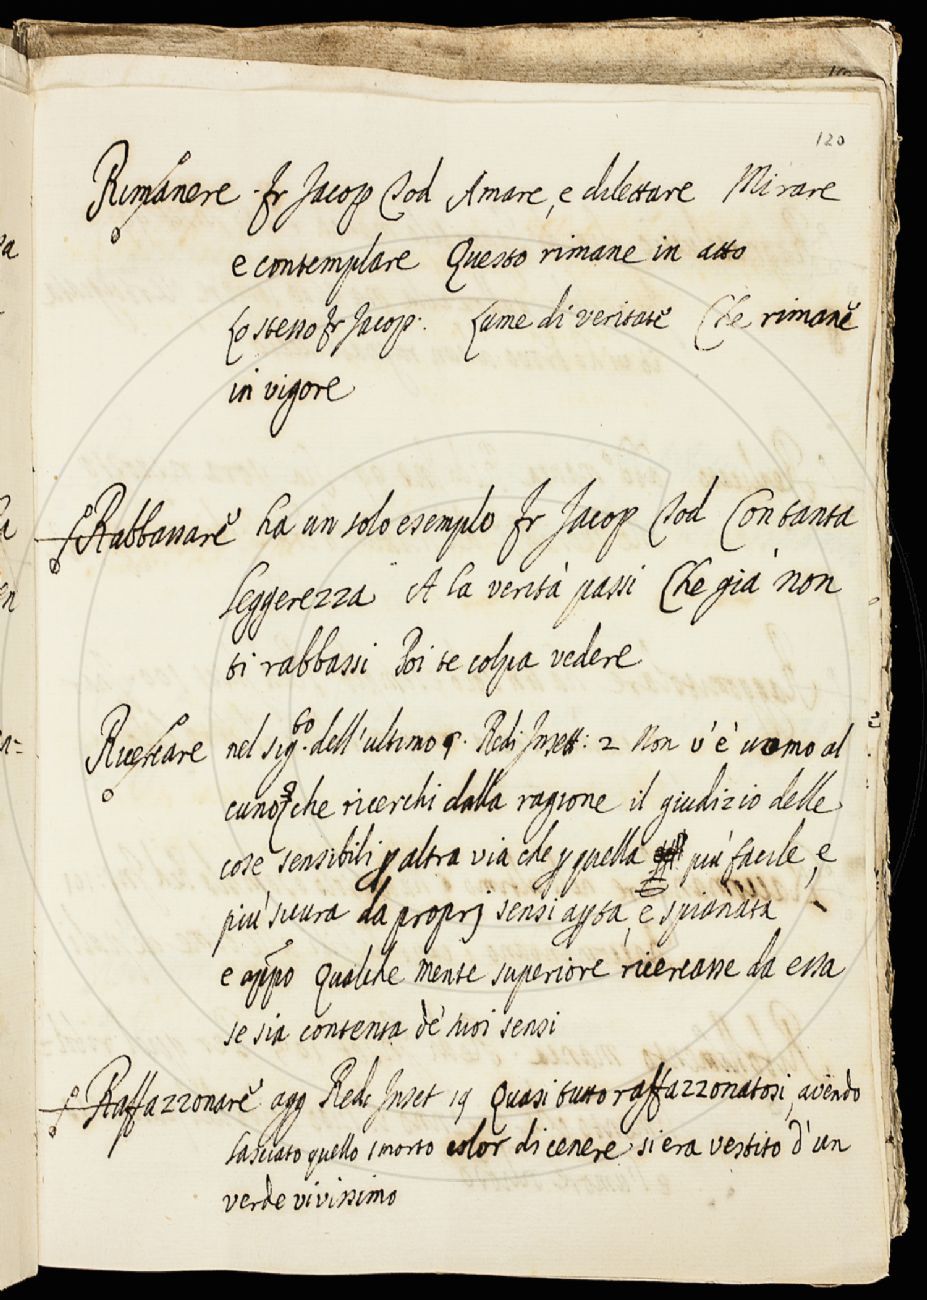 120
Rimanere. fr Jacop Tod Amare, e dilettare Mirare
e contemplare Questo rimane in atto
Lo stesso fr Jacop. Lume di veritate Che rimane
in vigore
Rabbassare ha un solo esempio Fr Jacop Tod Con tanta
leggerezza A la verità passi Che già non
ti rabbassi Poi te colpa vedere
Ricercare nel sigto. dell'ultimo §. Redi Inset: 2 Non v'è uomo al
cuno, che ricerchi dalla ragione il giudizio delle
cose sensibili p altra via che p quella più facile, e
più sicura da proprj sensi apta, e spianata
e appo Qualche mente superiore ricercasse da essa
se sia contenta de' suoi sensi
Raffazzonare agg Redi Inset 19 Quasi tutto raffazzonatosi, avendo
lasciato quello smorto color di cenere si era vestito d'un
verde vivissimo